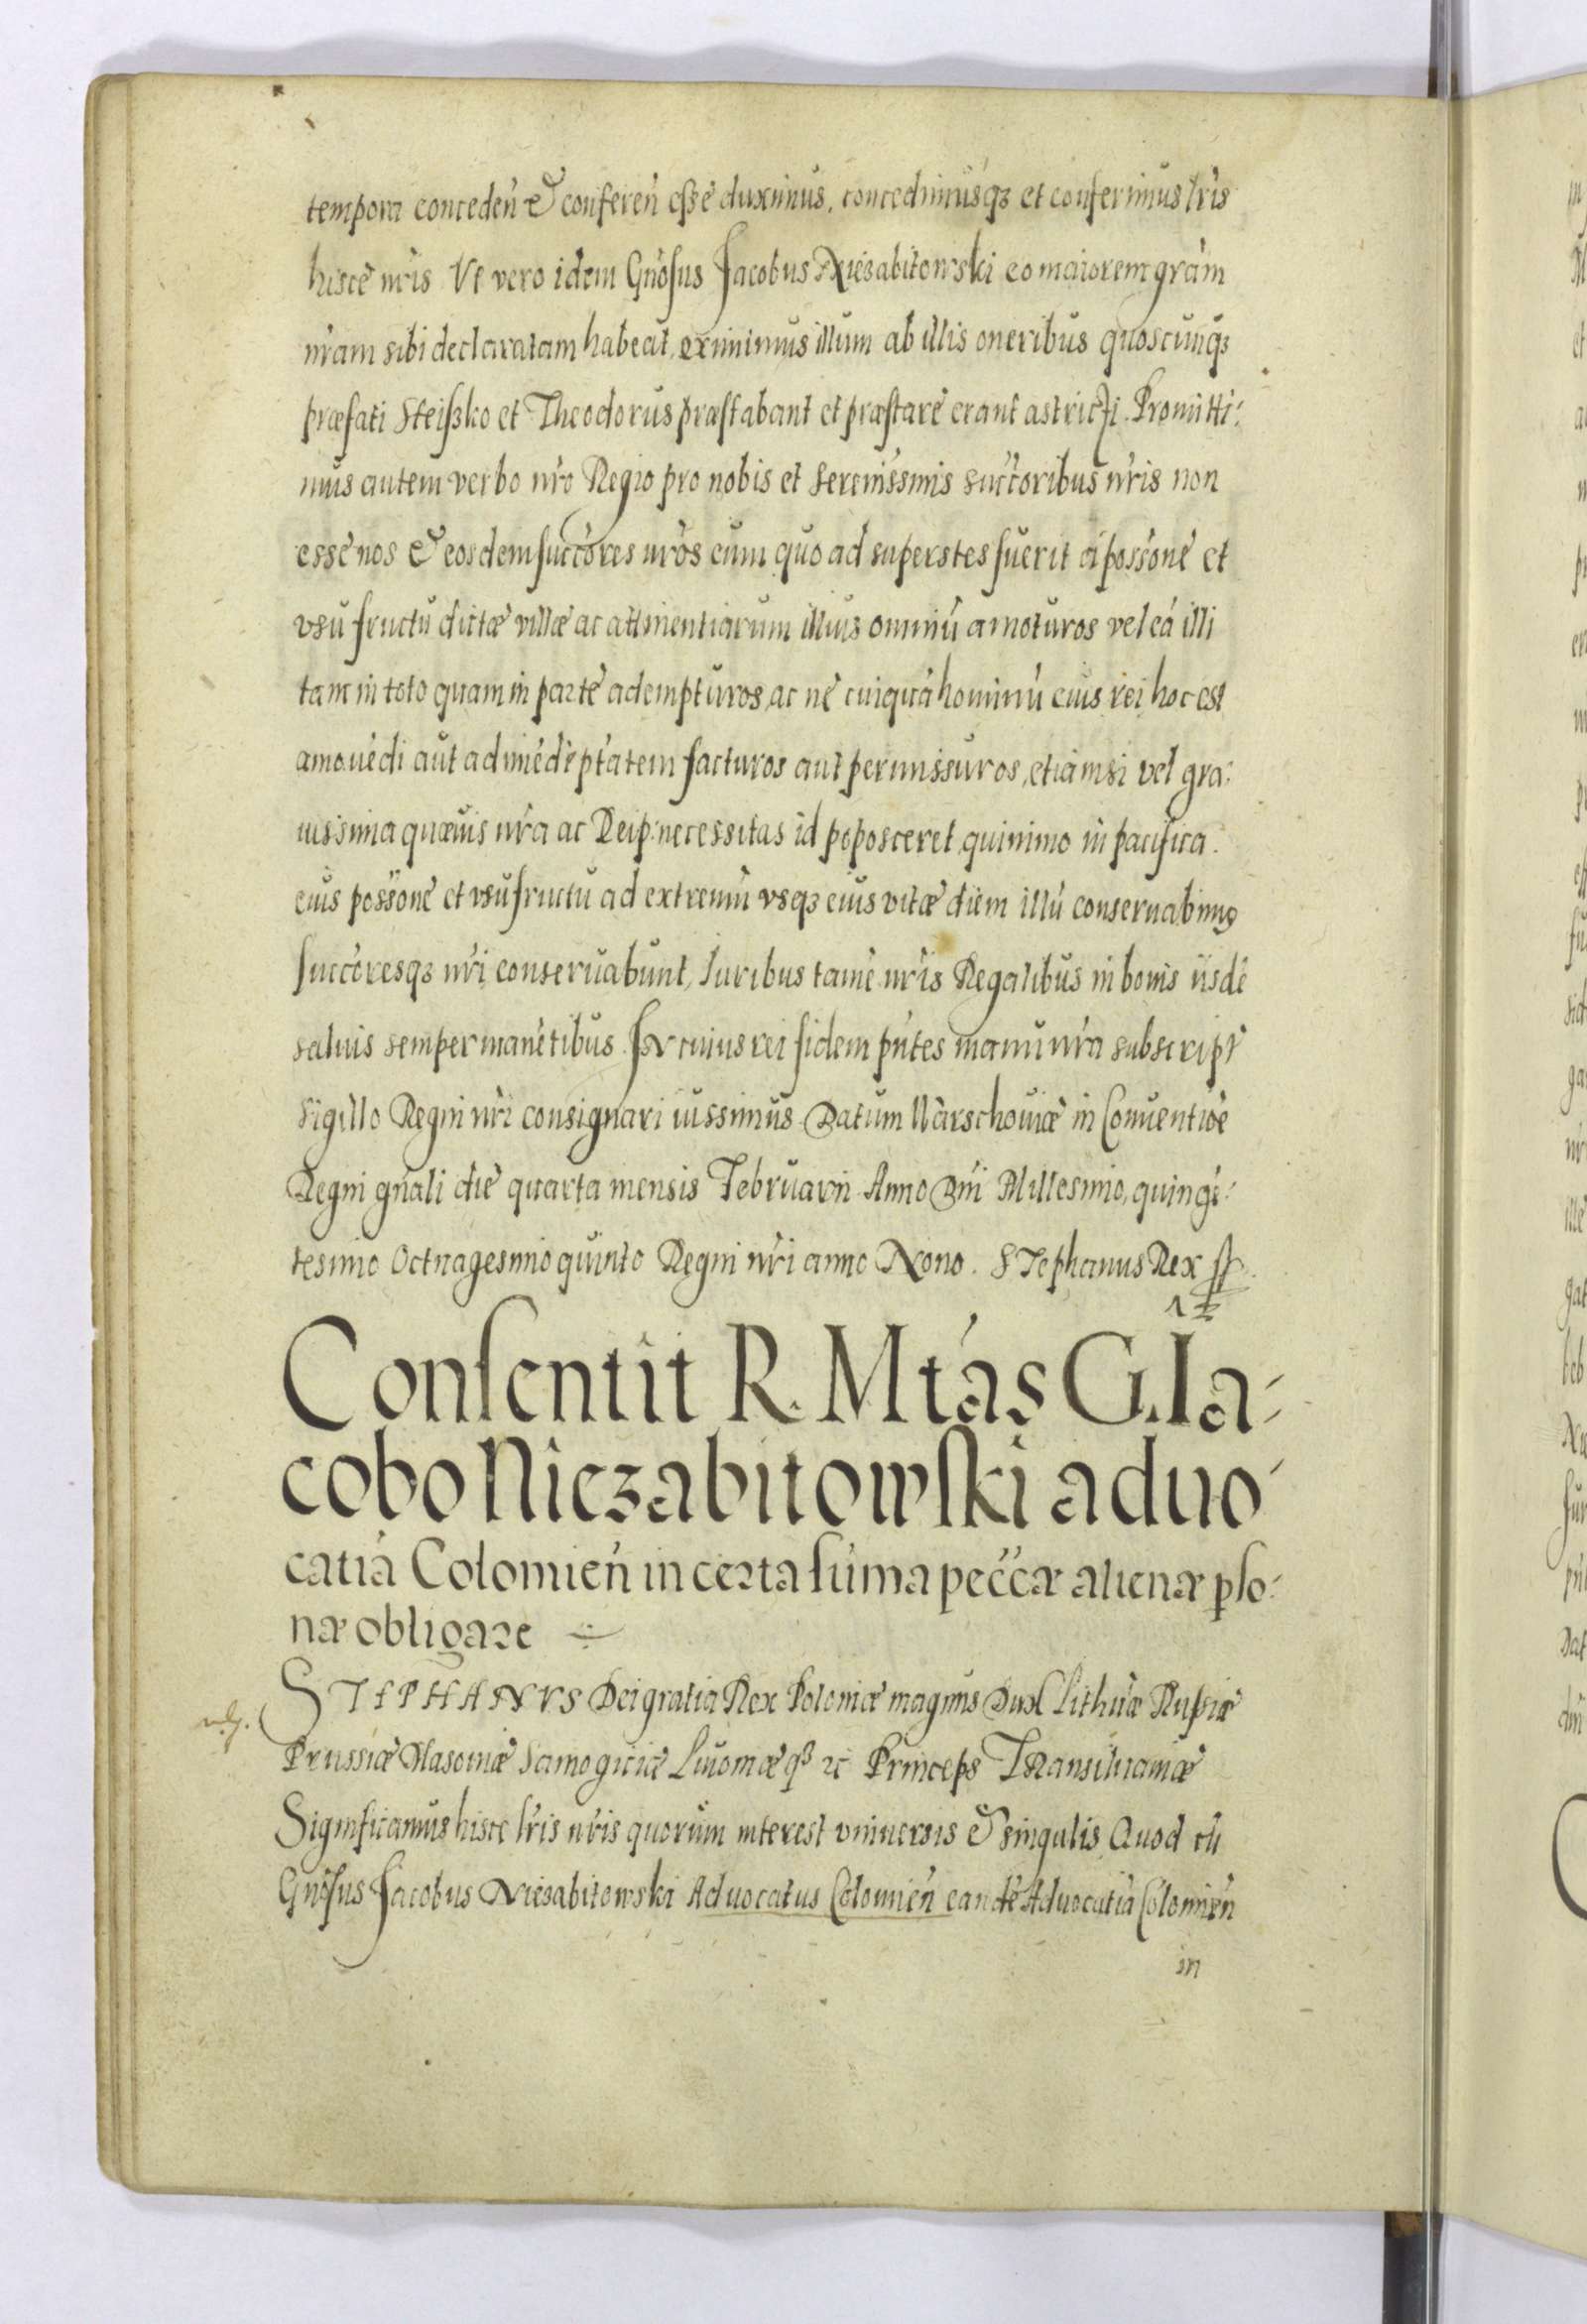 tempora conceden̄ et conferen̄ esse duximus, concedimusq3 et conferimus lr̄is
hisce nr̄is Vt vero idem Gn̄osus Jacobus Niezabitowski eo maiorem grãm
nr̄am sibi declaratam habeat, eximimus illum ab illis oneribus quoscunq3
præfati Steißko et Theodorus præstabant et præstare erant astricti. Promitti:
mus autem verbo nr̄o Regio pro nobis et Serenissimis succ̄oribus nr̄is non
esse nos et eosdem succ̄ores nr̄os eum quo ad superstes fuerit à poss̄one et
vsu fructu dictæ villæ ac attinentiarum illius omniū amoturos vel eā illi
tam in toto quam in parte adempturos, ac ne cuiquā hominū eius rei hoc est
amouēdi aut adimēdi p̄tatem facturos aut permissuros, etiamsi vel gra:
uissima quæuis nr̄a ac Reip: necessitas id poposceret, quinimo in pacifica
eius poss̄one et vsufructu ad extremū vsq3 eius vitæ diem illū conseruabimus
succ̄oresq3 nr̄i conseruabunt, Iuribus tamē nr̄is Regalibus in bonis iisdē
saluis semper manētibus. IN cuius rei fidem pn̄tes manu nr̄a subscript̄
sigillo Regni nr̄i consignari iussimus. Datum Warschouiæ in Conuentiōe
Regni gn̄ali die quarta mensis Februarii Anno Dn̄i Millesimo, quingē:
tesimo Octuagesimo quinto Regni nr̄i anno Nono. STephanus Rex
Consentit R. Mtás G. Ia:
cobo Niezabitowski aduo:
catiā Colomien̄ in certa sūma pecc̄æ alienæ p̱so:
næ obligare
STEPHANVS Dei gratia Rex Poloniæ magnus Dux Lithuæ Rußiæ
Prussiæ Masouiæ Samogitiæ Liuoniæ q3 zc Princeps TRansiluaniæ
Significamus hisce lr̄is nr̄is quorum interest vniuersis et singulis, Quod cū
Gn̄osus Jacobus Niezabitowski Aduocatus Colomien̄ eandē Aduocatiā Colomien̄
in